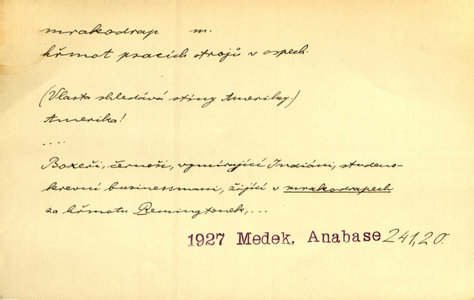 mrakodrap m.
hřmot psacích strojů v ospech
(Vlasta shledává stíny Ameriky)
Amerika!
....
Boxeři, černoši, vymírající Indiáni, studeno-
krevní businessmani, žijící v mrakodrapech
za hřmotu Remingtonek,...
1927 Medek, Anabase 241,20.